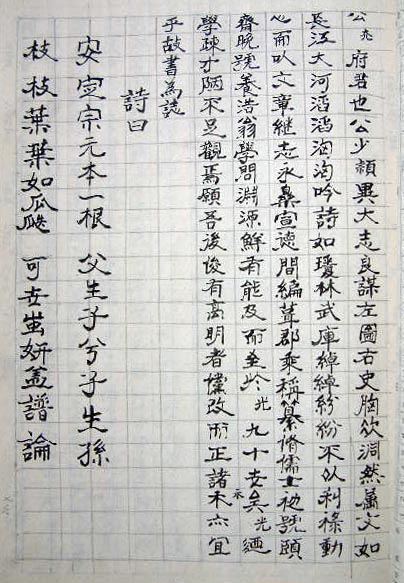 公允府君也公少頴異大志良謀左圖右史胸次洞然蕭文如
長江大河滔滔洶洶吟詩如瓊林武庫綽綽紛紛不以利祿動
心而以文章継志永樂宣德間編葺郡乘稱纂脩儒士初號頤
齋晚號養浩翁學問淵源鮮有能及而至於光九十世矣光廼
學疎才陋不足觀焉願吾後俊有高明者僅改而正諸不亦宜
乎故書為誌
詩曰
安定宗元本一根 父生子兮子生孫
枝枝葉葉如瓜瓞 可世蚩妍盖譜論